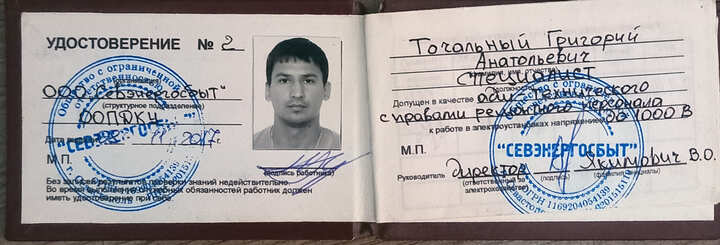 УДОСТОВЕРЕНИЕ № 2
Общество с ограниченной
ответственностью
(организация)
ООО "Севэнергосбыт"
(структурное подразделение)
ООПДКУ
СЕВЭНЕРГОСБЫТ
Дата
11. 2017г.
М.П.
(подпись работника)
Без записей результатов проверки знаний недействительно.
Во время выполнения служебных обязанностей работник должен
иметь удостоверение при себе.
Точальный Григорий
Анатольевич
(фамилия, имя, отчество)
специалист
(должность)
Допущен в качестве
технического
с правами ремонтного персонала
до 1000 В
к работе в электроустановках напряжением
М.П.
"СЕВЭНЕРГОСБЫТ"
Руководитель
директор
Якимович В.О.
(ответственный за
электрохозяйство)
(подпись)
(фамилия, инициалы)
ОГРН 1169204054139